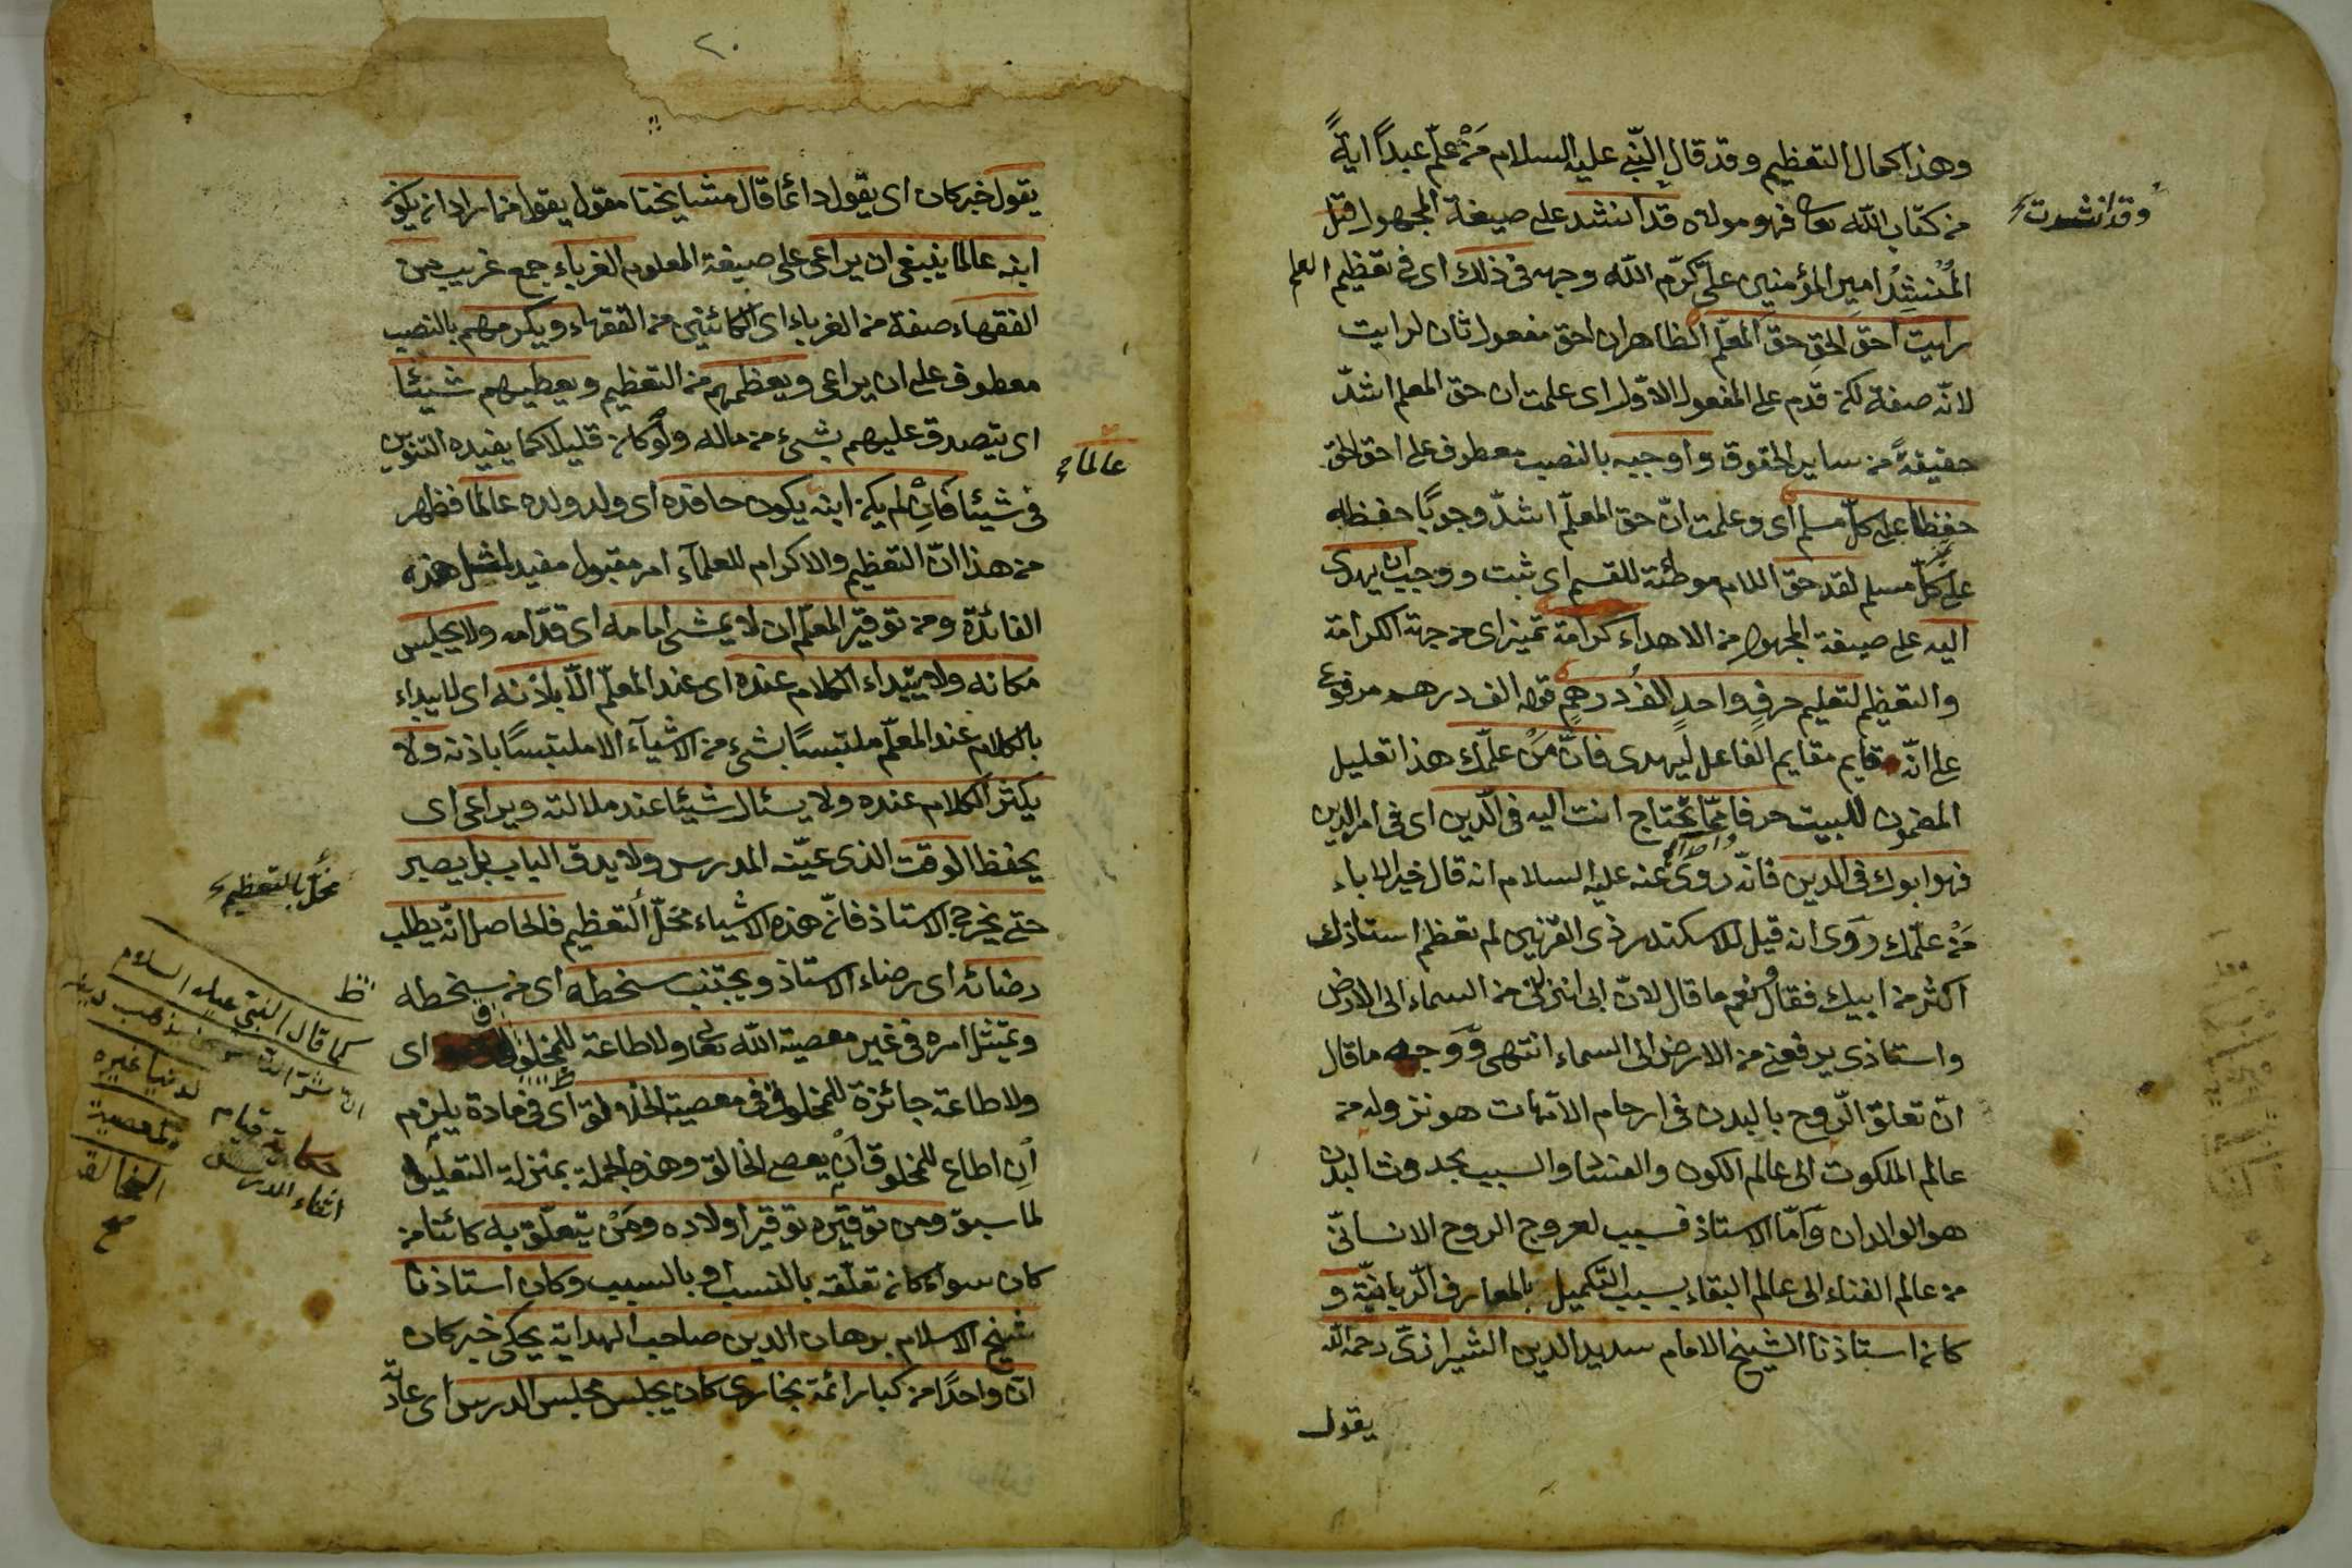 وهذا كمال التعظيم وقد قال النبي عليه السلام مَنْ علّم عبداً ايةً
من كتاب الله تعا فهو مولاه قد انشد على صيغة المجهول قيل
وقد انشدت
المُنْشِدُ امير المؤمنين علىّ كرّم الله وجهه فى ذلك اى فى تعظيم العلم
رايت احقّ الحقِ حقَّ المعلّم الظاهر ان احق مفعول ثان لرايت
لانّه صفة لكن قدّم على المفعول الاوّل اى علمت ان حق المعلم اشدّ
حقيقةً من ساير الحقوق وأوجبه بالنصب معطوف على احق الحق
حفظا على كلّ مسلم اى وعلمت انّ حق المعلّم اشدّ وجوبًا حفظه
على كلّ مسلم لقد حق اللام موطئة للقسم اى ثبت ووجب ان يهدى
اليه على صيغة المجهول من الاهداء كرامة تميز اى من جهة الكرامة
والتعظيم لتعليم حرفٍ واحدٍ الفُ درهمٍ قوله الف درهم مرفوع
على انّه قايم مقايم الفاعل ليهدى فانّ مَنْ علّمك هذا تعليل
المضمون للبيت حرفا ممّا تحتاج انت اليه فى الدّين اى فى امر الدين
فهو ابوك فى الدين فانّه روى عنه عليه السلام انه قال خير الاباء
مَنْ علّمك وروى انه قيل للاسكندر ذى القرنين لم تعظم استاذك
اكثر من ابيك فقال نعم ما قال لانّ ابى انزلنى من السماء الى الارض
واستاذى يرفعنى من الارض الى السماء انتهى وَوَجهه ما قال
انّ تعلقّ الرّوح بالبدن فى ارحام الامّهات هو نزوله من
عالم الملكوت الى عالم الكون والفساد والسبب بحدوث البدن
هو الوالدان وَامّا الاستاذ فسبب لعروج الروح الانسانّى
من عالم الفناء الى عالم البقاء بسبب التكميل بالمعارف الرّبانيّة و
كان استاذنا الشيخ الامام سديد الدين الشيرازىّ رحمه الله
يقول
٢٠
يقول خبر كان اى يقول دائما قال مشايخنا مقول يقول من اراد ان يكون
ابنه عالما ينبغى ان يراعى على صيغة المعلوم الغرباء جمع غريب من
الفقهاء صفة من الغرباء اى الكائنين من الفقهاء ويكرمهم بالنصب
معطوف على ان يراعى ويعظمهم من التعظيم ويعطيهم شيئا
اى يتصدق عليهم بشىء من ماله ولو كان قليلا كما يفيده التنوين
عالما
فى شيئا فَانْ لم يكن ابنه يكون حافده اى ولد ولده عالما فظهر
من هذا انّ التعظيم والاكرام للعلمآء امر مقبول مفيد لمثل هذه
الفائدة ومن توقير المعلّم ان لا يمشى امامه اى قدّامه ولا يجلس
مكانه ولا يبتداء الكلام عنده اى عند المعلّم الّا باذنه اى لا يبداء
بالكلام عند المعلّم ملتبسًا بشىء من الاشيآء الا ملتبسًا باذنه ولا
يكثر الكلام عنده ولا يسئال شيئا عند ملالته ويراعى اى
يحفظ الوقت الذى عيّنه المدرس ولا يدق الباب بل يصبر
حتى يخرج الاستاذ فانّ هذه الاشياء مخلّ التعظيم فالحاصل انّه يطلب
مخلّ بالتعظيم
رضائه اى رضاء الاستاذ ويجتنب سخطه اى من سخطه
ويمتثل امره فى غير معصية الله تعا ولا طاعة للمخلوق اى
ولا طاعة جائزة للمخلوق فى معصية الخالق اى فى مادة يلزم
اَنِ اطاع للمخلوق اَنْ يعصى الخالق وهذه الجملة بمنزلة التعليل
لما سبق ومن توقيره توقير اولاده ومَنْ يتعلّق به كائنا من
كان سواء كان تعلّقه بالنسب او بالسبب وكان استاذنا
شيخ الاسلام برهان الدين صاحب الهداية يحكى خبر كان
انّ واحدًا من كبار ائمة بخارى كان يجلس مجلس الدرس اى عادته
كما قال النبى عليه السلام
ان شرّ الناس من يذهب دينه
لدنيا غيره
بمعصية
الخالق
صح
حكاية قيام
اثناء الدرس